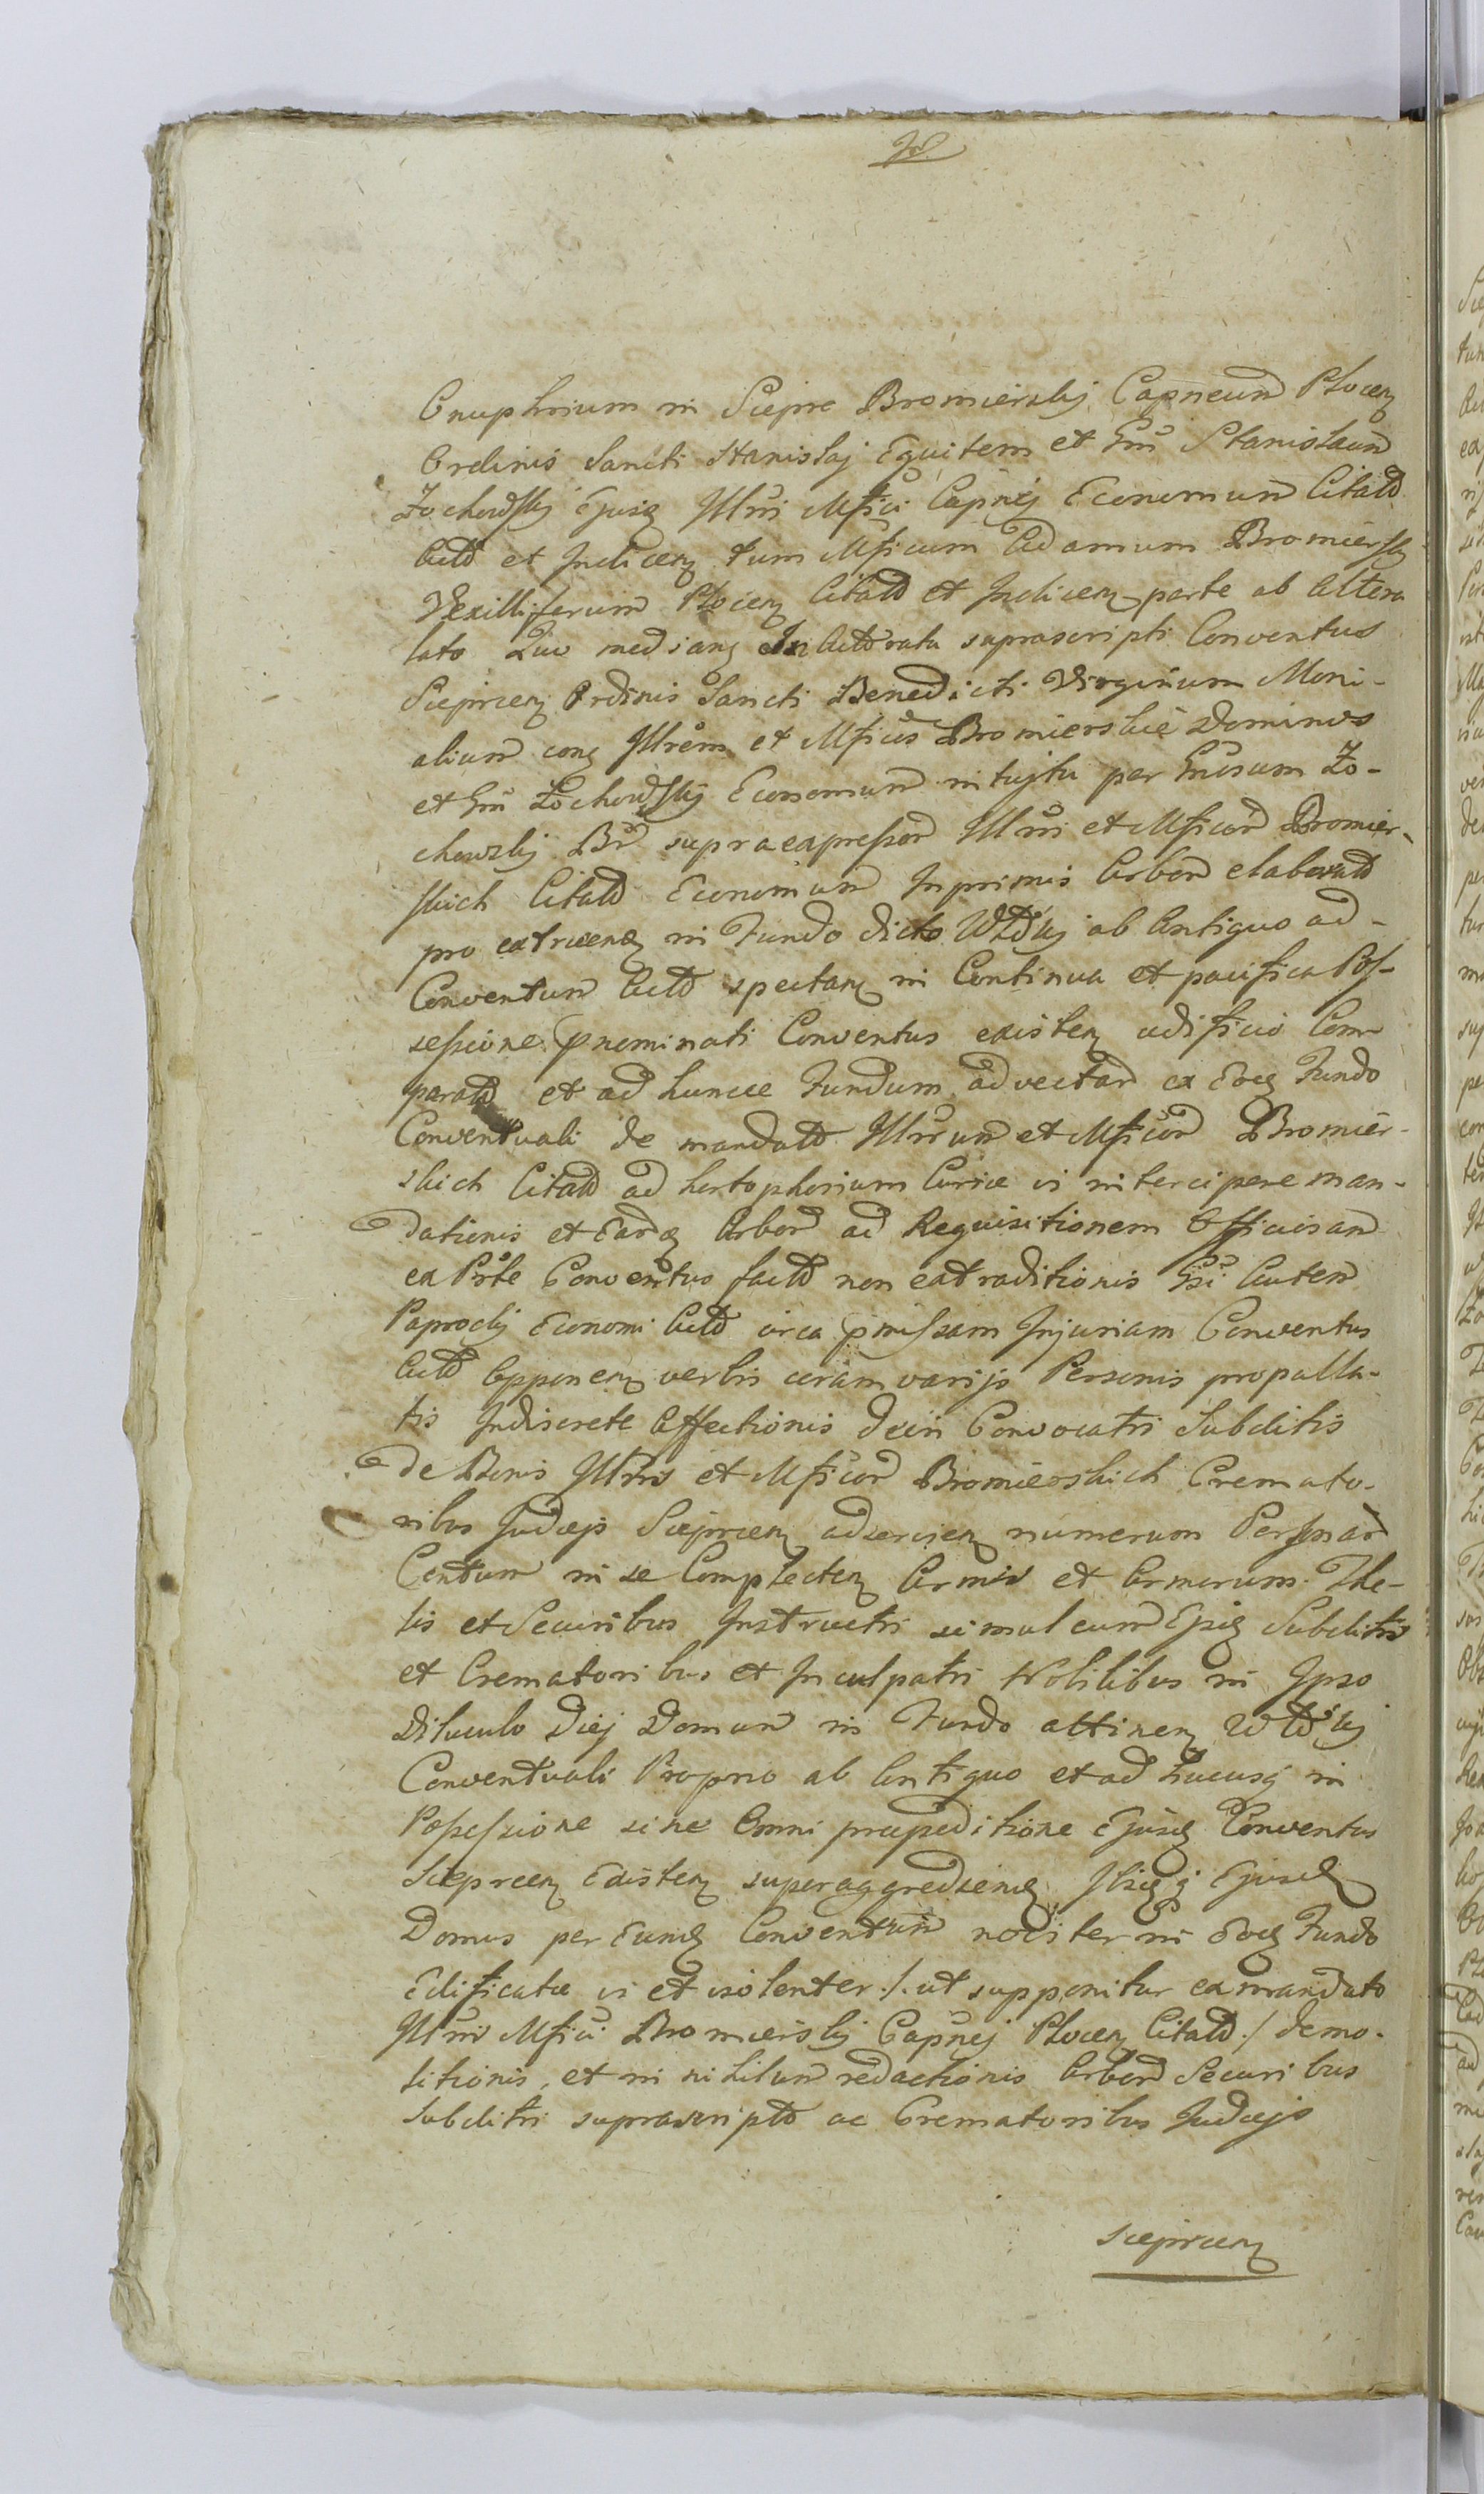 Onuphrium in Sieprc Bromierskij Capneum Plocen
Ordinis Sancti Stanislaj Equitem et Gnu Stanislaum
Zochowskij Ejusq Illri Mfici Capnej Economum Citatt
Actt et Judicen tum Mficum Adamum Bromierskij
Vexilliferum Plocen Citatt et Judicen parte ab altera
lato Quo median Actoratu suprascripti Conventus
Sieprcen Ordinis Sancti Benedicti Virginum Moni-
alium con Illrem et Mficos Bromierskie Dominos
et Gnu Zochowskij Economum intujtu per Gnosum Zo-
chowskij supraexpressor Illri et Mficor Bromier-
skich Citatt Economum Inprimis Arbor elaboratt
pro extruen in Fundo dicto ab Antiquo ad
Conventum Actt spectan in Continua et pacifica Pos-
sessione pnominati Conventus existen adificio Com-
paratt et ad huncce Fundum advectar ex Eoq Fundo
Conventuali de mandatt Illrum et Mficor Bromier-
skich Citatt ad hortophorium Curiæ vi intercipere man-
dationis et Eardq Arbor ad Requisitionem Officiosam
ex Prte Conventus factt non extraditionis Gsi Autem
Paprockij Economi Actt circa pmissam Injuriam Conventus
Actt Opponen verbis coram varijs Personis propalla-
tis Indiscrete Affectionis dein Convocatis Subditis
de Bonis Illris et Mficor Bromierskich Cremato-
ribus Judæjs Sieprcen adservien numerum Personar
Centum in se Complecten Armis et Armorum The-
lis et Securibus Instructis simul cum Ejsq Subditis
et Crematoribus et Inculpatis Nobilibus in Ipso
Diluculo Diej Domum in Fundo attinen
Conventuali Proprio ab Antiquo et ad hucusq in
Possessione sine Omni præpeditione Ejusq Conventus
Sieprcen Existen superaggrediend Ibiq q Ejusd
Domus per Eundq Conventum noviter in Eoq Fundo
Edificatæ vi et violenter ./. ut supponitur ex mandato
Illris Mfici Bromierskij Capnej Plocen Citatt ./. demo-
litionis, et in nihilum redactionis Arbor Securibus
Subditis suprascriptt ac Crematoribus Judæjs
Sieprcen